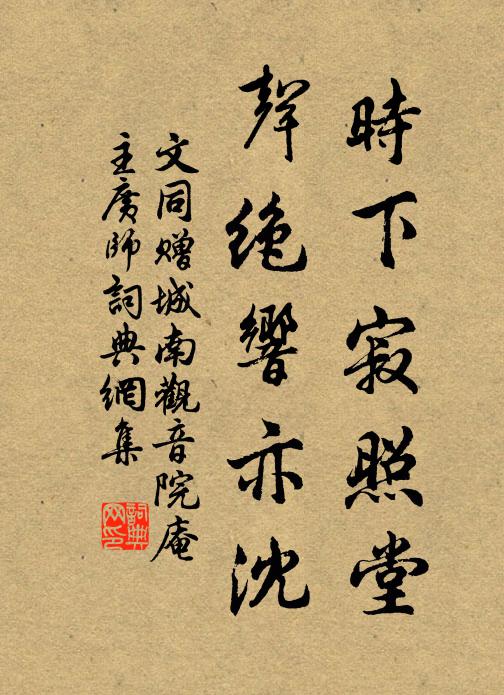 時下寂照堂
聲絶響亦沈
文同贈城南觀音院庵
主廣師詞典網集
詞典網印